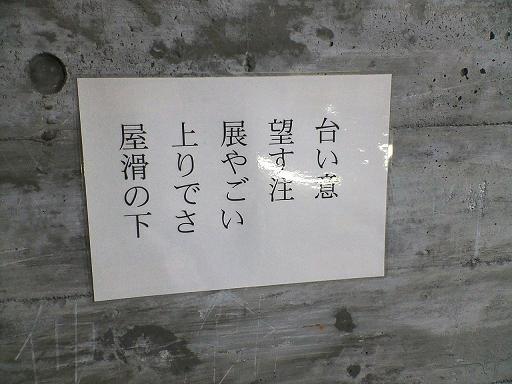 屋上展望台
滑りやすい
のでご注意
下さい